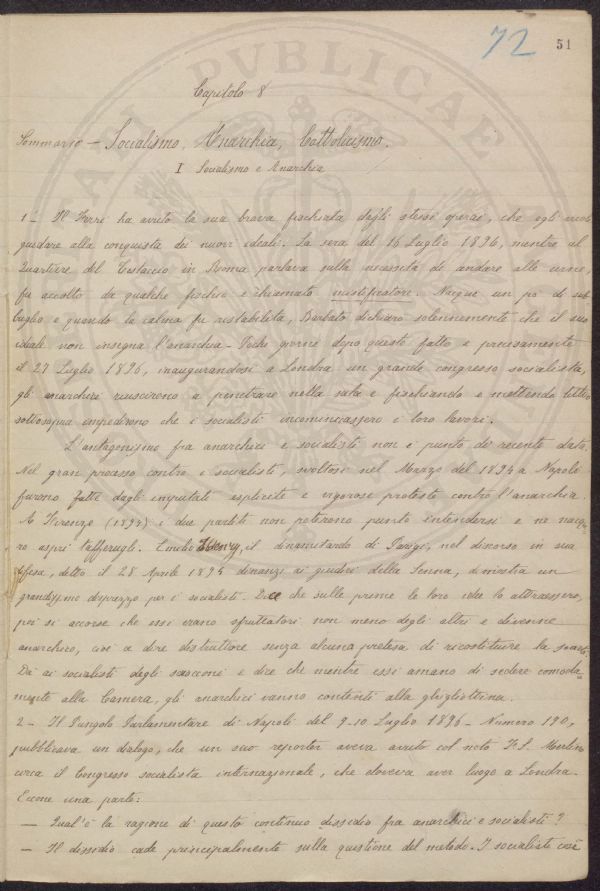 72 51
Capitolo 8
Sommario — Socialismo, Anarchia, Cattolicismo.
I Socialismo e Anarchia
1 — Il Ferri ha avuto la sua brava fischiata dagli stessi operai, che egli vuol
guidare alla conquista dei nuovi ideali. La sera del 16 Luglio 1896, mentre al
Quartiere del Testaccio in Roma parlava sulla necessità di andare alle urne,
fu accolto da qualche fischio e chiamato mistificatore. Nacque un pò di sub
buglio e quando la calma fu ristabilita, Barbato dichiarò solennemente che il suo
ideale non insegna l'anarchia — Poche giorne dopo questo fatto e precisamente
il 27 Luglio 1896, inaugurandosi a Londra un grande congresso socialista,
gli anarchici riuscirono a penetrare nella sala e fischiando e mettendo tutto
sottosopra impedirono che i socialisti incominciassero i loro lavori.
L'antagonismo fra anarchici e socialisti non è punto di recente data.
Nel gran processo contro i socialisti, svoltosi nel Marzo del 1894 a Napoli
furono fatte dagli imputati esplicite e vigorose proteste contro l'anarchia.
A Firenze (1894) i due partiti non poterono punto intendersi e ne nacque
ro aspri tafferugli. Emilio Henry, il dinamitardo di Parigi, nel discorso in sua
difesa, detto il 28 Aprile 1894 dinanzi ai giudici della Senna, dimostra un
grandissimo disprezzo per i socialisti. Dice che sulle prime le loro idee lo attraessero,
poi si accorse che essi erano sfruttatori non meno degli altri e divenne
anarchico, cioè a dire distruttore senza alcuna pretesa di ricostituire la società.
Dà ai socialisti degli and dire che mentre essi amano di sedere comoda
mente alla Camera, gli anarchici vanno contenti alla ghigliottina.
2 — Il Pungolo Parlamentare di Napoli del 9-10 Luglio 1896 — Numero 190,
pubblicava un dialogo, che un suo reporter aveva avuto col noto F. S. Merlino
circa il Congresso socialista internazionale, che doveva aver luogo a Londra.
Eccone una parte:
— Qual'è la ragione di questo continuo dissidio fra anarchici e socialisti?
— Il dissidio cade principalmente sulla questione del metodo. I socialisti così